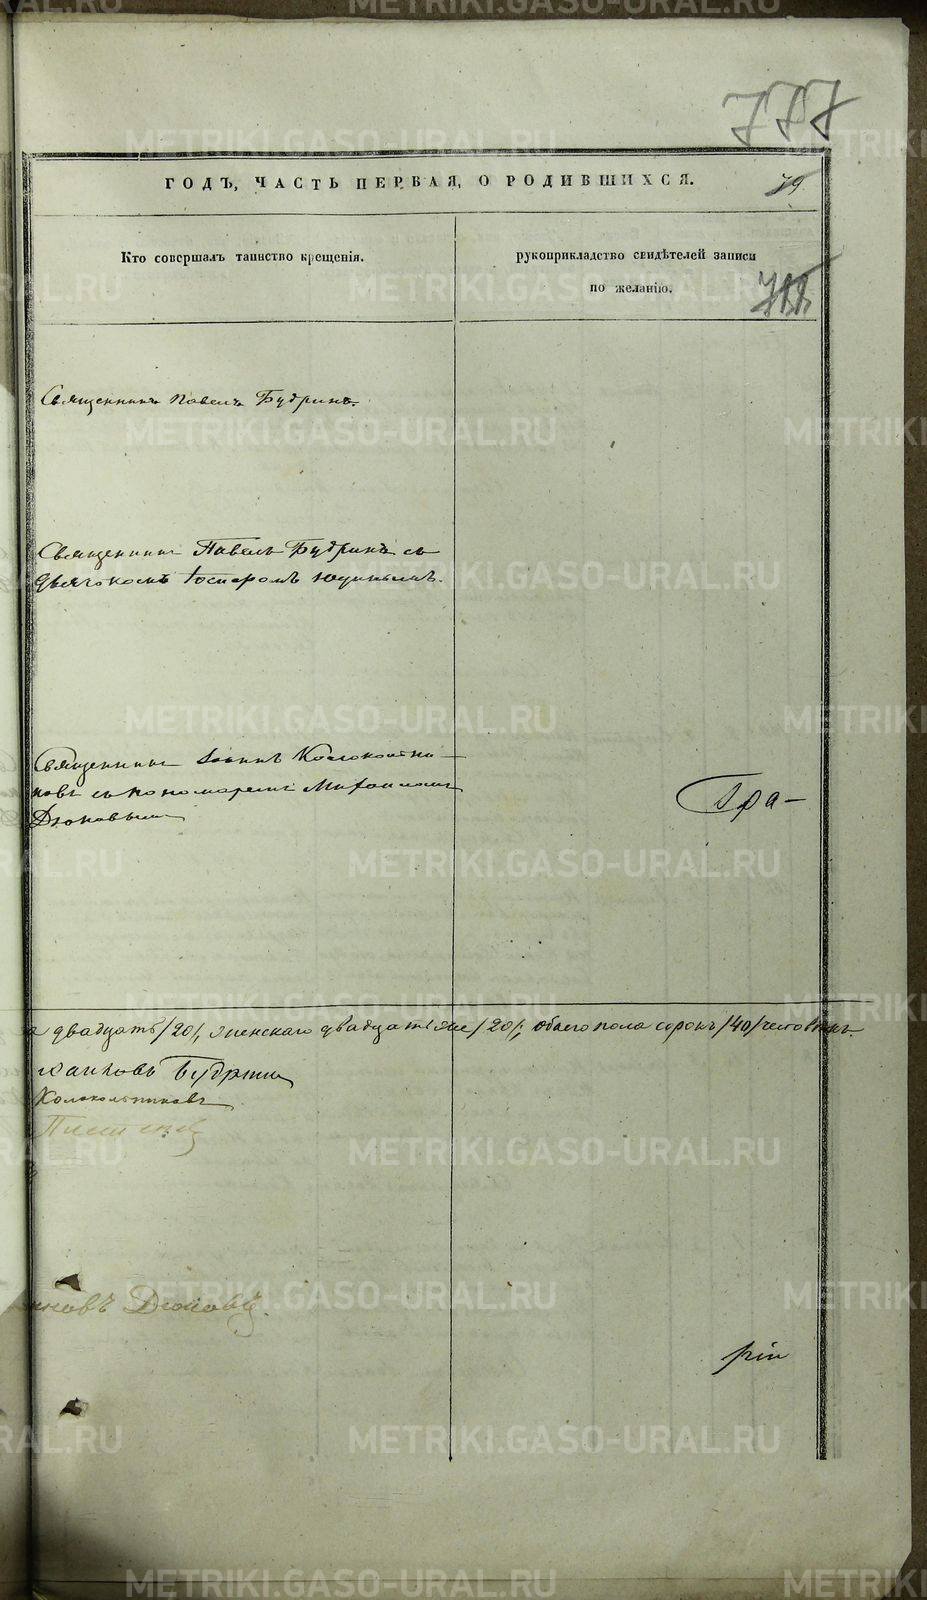 777
ГОДЪ, ЧАСТЬ ПЕРВАЯ, О РОДИВШИХСЯ.
79
Кто совершалъ таинство крещенія.
рукоприкладство свидѣтелей записи
по желанію.
Священникъ Павелъ Будринъ.
Священникъ Павелъ Будринъ съ
дьячкомъ
Священникъ Іоаннъ Колокольни-
ковъ съ пономаремъ Михаиломъ
Дюковымъ
Гра-
а двадцать /20/, женскаго двадцать же /20/, обоего пола сорокъ /40/ человѣкъ.
Будрин
Колокольниковъ
новъ Дюковъ.
METRIKI.GASO-URAL.RU